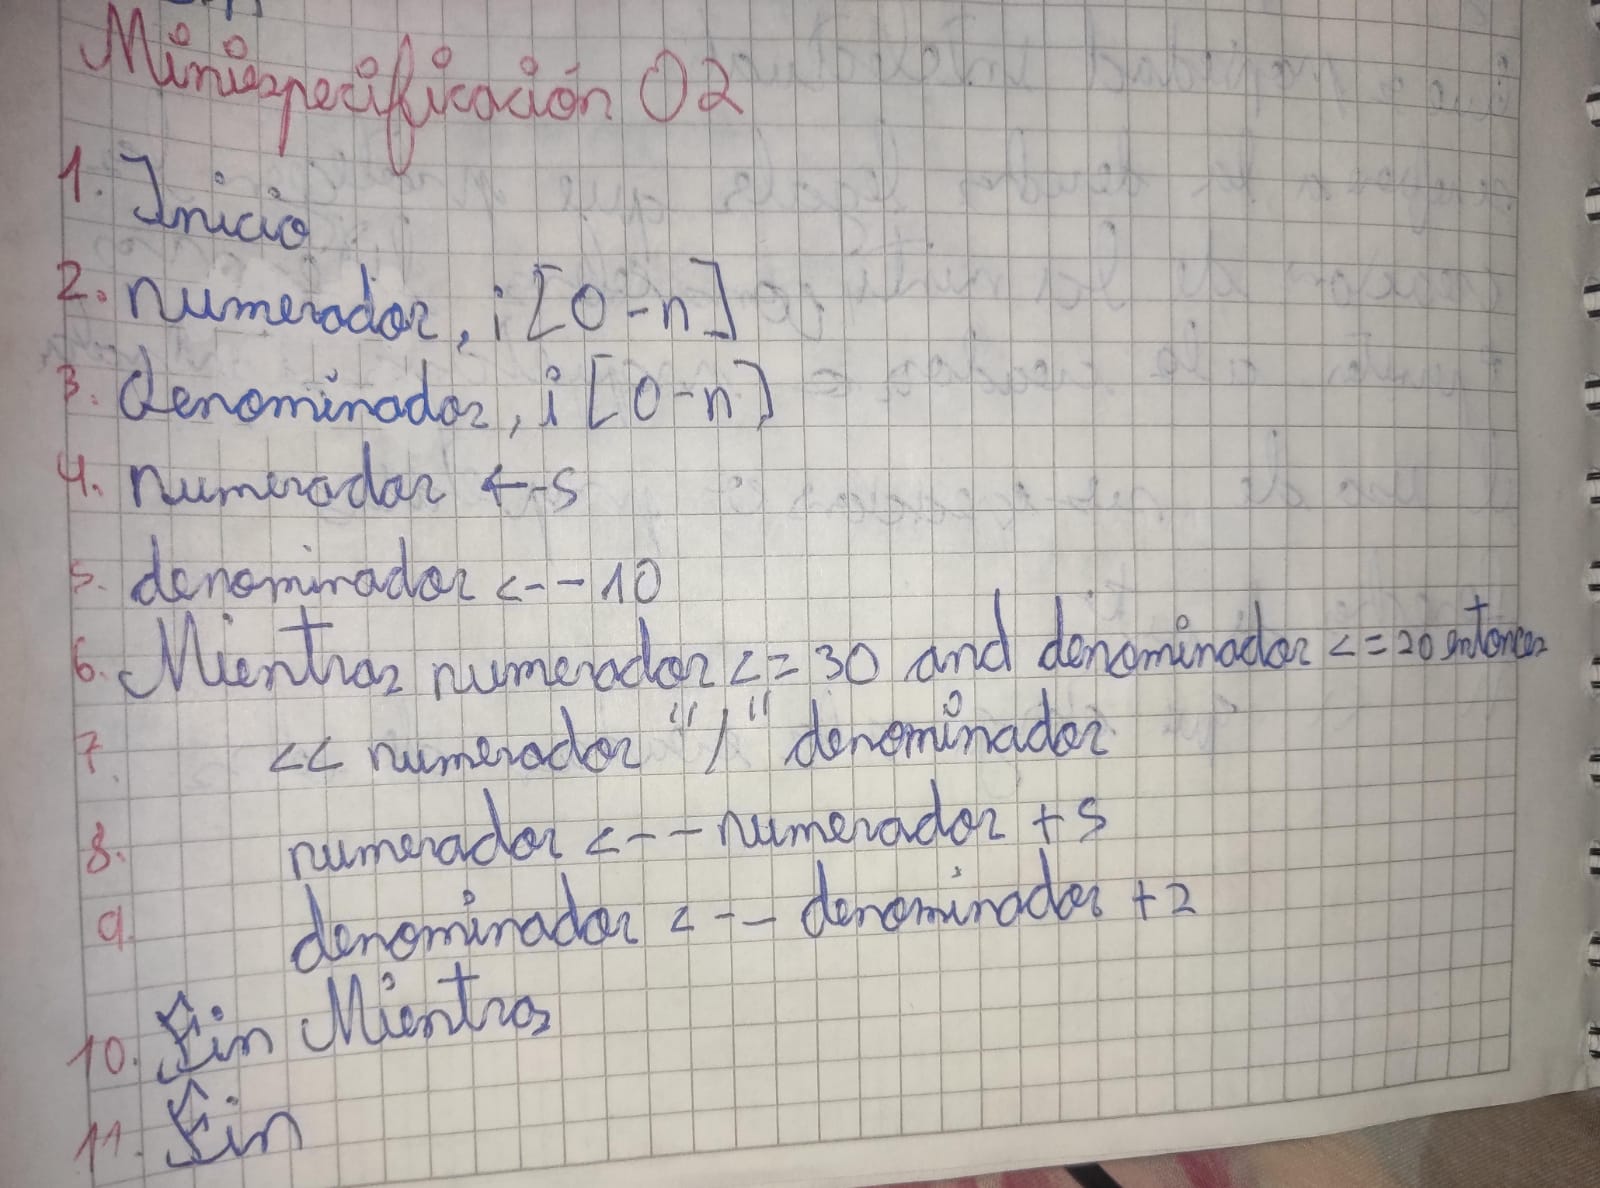 Miniespecificación 02
1. Inicio
2. numerador, i [0-n]
3. denominador, i [0-n]
4. numerador <--5
5. denominador <--10
6. Mientras numerador <= 30 and denominador <= 20 entonces
7. << numerador "/" denominador
8. numerador <-- numerador + 5
9. denominador <-- denominador + 2
10. Fin Mientras
11. Fin